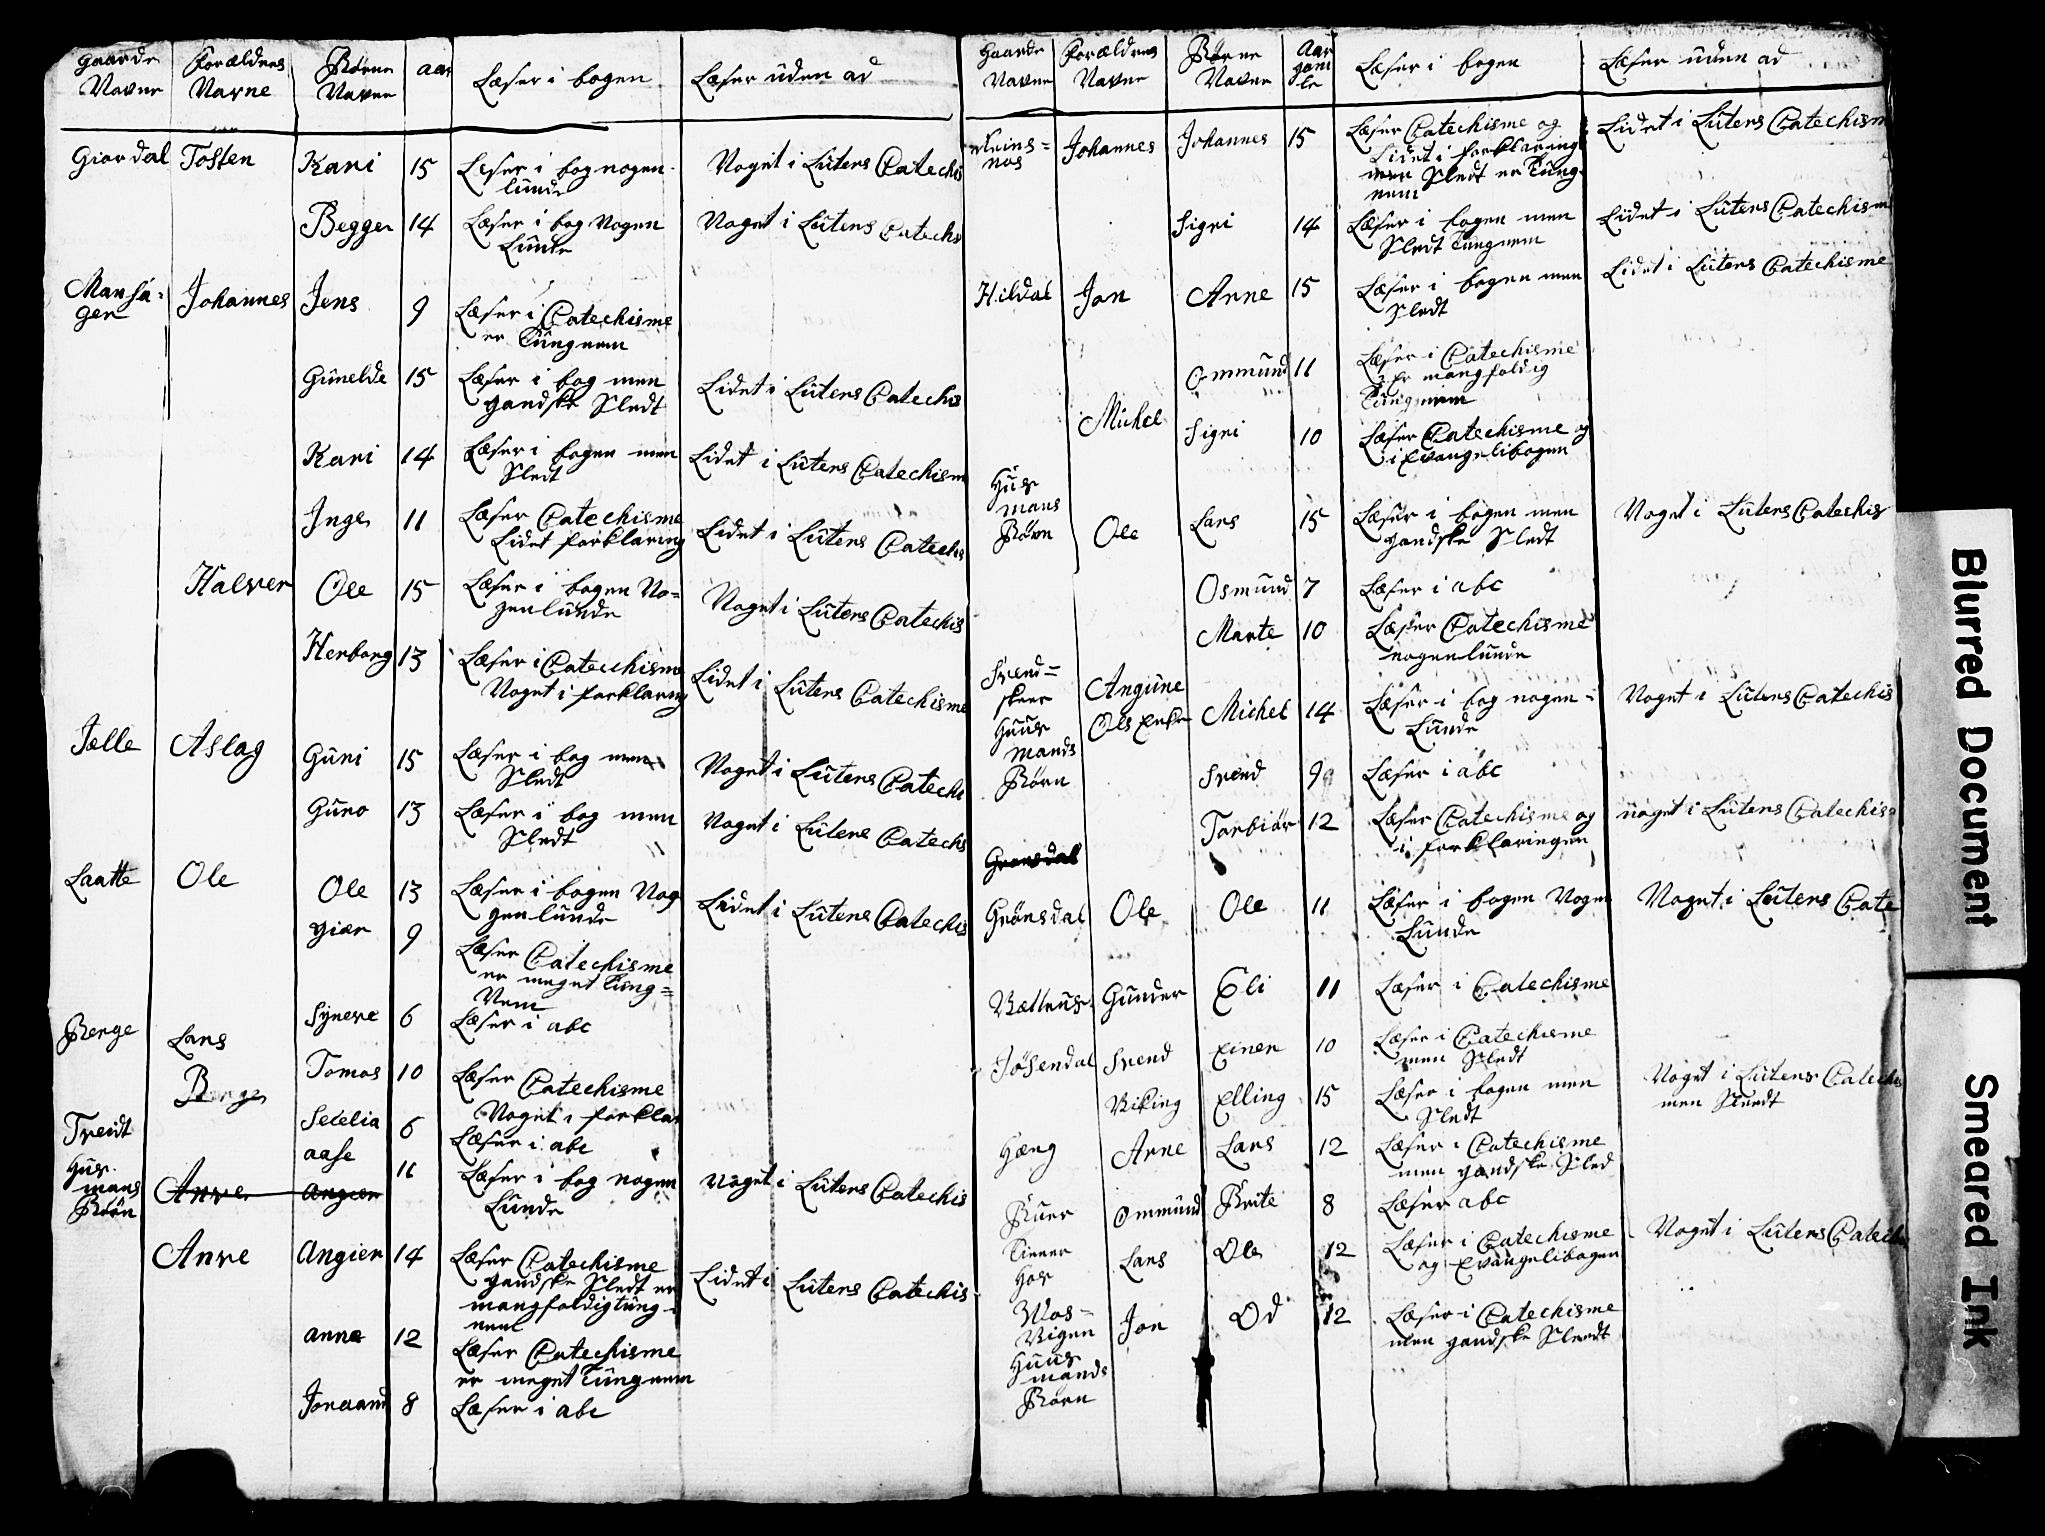 Gaarde Navne Forældres Navne Børne Navne aar Læser i bogen Læser uden ad
Giordal Tosten Kari 15 Læser i bog nogen lunde Noget i Luters Catechis
Begger 14 Læser i bog Nogen Lunde Noget i Luters Catechs
Mansa-ger Johannes Jens 9 Læser i Catechisme er Tungnem
Gunelde 15 Læser i bog men gandske Sledt Lidet i Luters Catechis
Kari 14 Læser i bogen men Sledt Lidet i Luters Catechism
Inger 11 Læser Catechisme Lidet forklaring Lidet i Luters Catechis
Halver Ole 15 Læser i bogen No=genlunde Noget i Luters Catechis
Herborg 13 Læser i Catechisme Noget i forklaring Lidet i Luters Catechisme
Jælle Aslag Guni 15 Læser i bog men Sledt Noget i Luters Catechi
Guro 13 Læser i bog men Sledt Noget i Luters Catechs
Laatte Ole Ole 13 Læser i bogen Nog genlunde Lidet i Luters Catechis
giær 9 Læser Catechisme er meget Tung=Nem
Syneve 6 Læser i abc
Berge Lars Tomas 10 Læser Catechisme Noget i forklar
Setelia 6 Læser i abc
Treidt
Hus mans Børn aase 11 Læser i bog nogen Lunde Noget i Luters Catechis
Anve angier
Anve Angier 14 Læser Catechisme gandske Sledt er mangfoldig tung-nem Lidet i Luters Catechis
anna 12 Læser Catechisme er meget Tungnem
Joraand 8 Læser i abc
Gaarde Navne Forældres Navne Børne Navne Aar gam le Læser i bogen Læser uden ad
Johannes Johannes 15 Læser Catechisme og Lidet i forklaring men Sledt er Tung nem Lidet i Luters Catechism
Sigri 14 Læser i bogen men Sledt Tungnem Lidet i Luters Catechism
Hildal Jon Anne 15 Læser i bogen men Sledt Lidet i Luters Catechisme
Ommund 11 Læser i Catechisme er mangfoldig Tungnem
Michel Sigri 10 Læser Catechisme og i Evangelibogen
Hus mans Børn Ole Lars 15 Læser i bogen men gandske Sledt Noget i Luters Catechis
Osmund 7 Læser i abc
Marte 10 Læser Catechisme nogenlunde
Svend=skeer Huus mands Børn Angune Ols Enke Michel 14 Læser i bog nogen-Lunde Noget i Luters Catechis
Svend 9 Læser i abc
Torbiør 12 Læser Catechisme og i forklaringen noget i Luters Catechis
Grønsdal Ole Ole 11 Læser i bogen Nogen Lunde Noget i Luters Cate
Gunder Eli 11 Læser i Catechisme
Jøsendal Svend Einer 10 Læser i Catechisme men Sledt
Viking Elling 15 Læser i bogen men Sledt Noget i Luters Catechi men Sledt
Hæng Arne Lars 12 Læser i Catechisme men gandske Sled
Buer Ommund Brite 8 Læser abc
Tiener Hos Lars Ole 12 Læser i Catechisme og Evangelibogen Noget i Luters Catech
Mos=Vigen Huus mands Børn Jon Od 12 Læser i Catechisme men gandske Sledt
Blurred Document
Smeared Ink